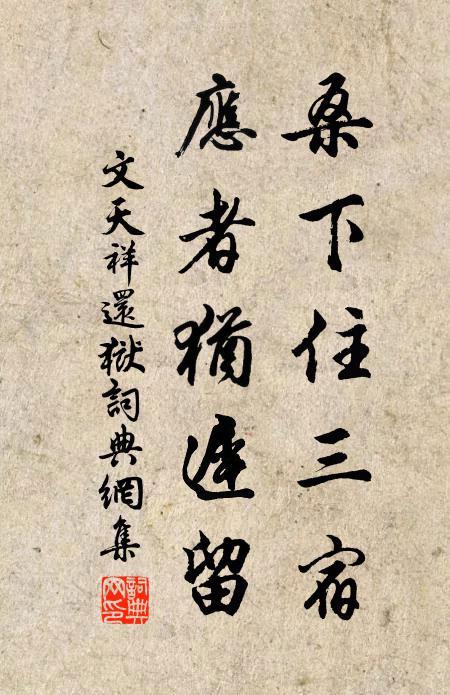 桑下住三宿
應者猶遲留
文天祥還獄詞典網集
詞典網印